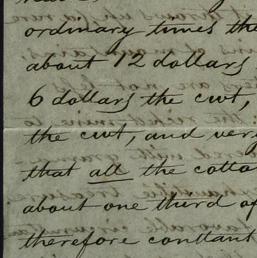 ordinary times the
about 12 dollars
6 dollars the cwt,
the cwt, and very
that all the cotto
about one third of
therefore constant